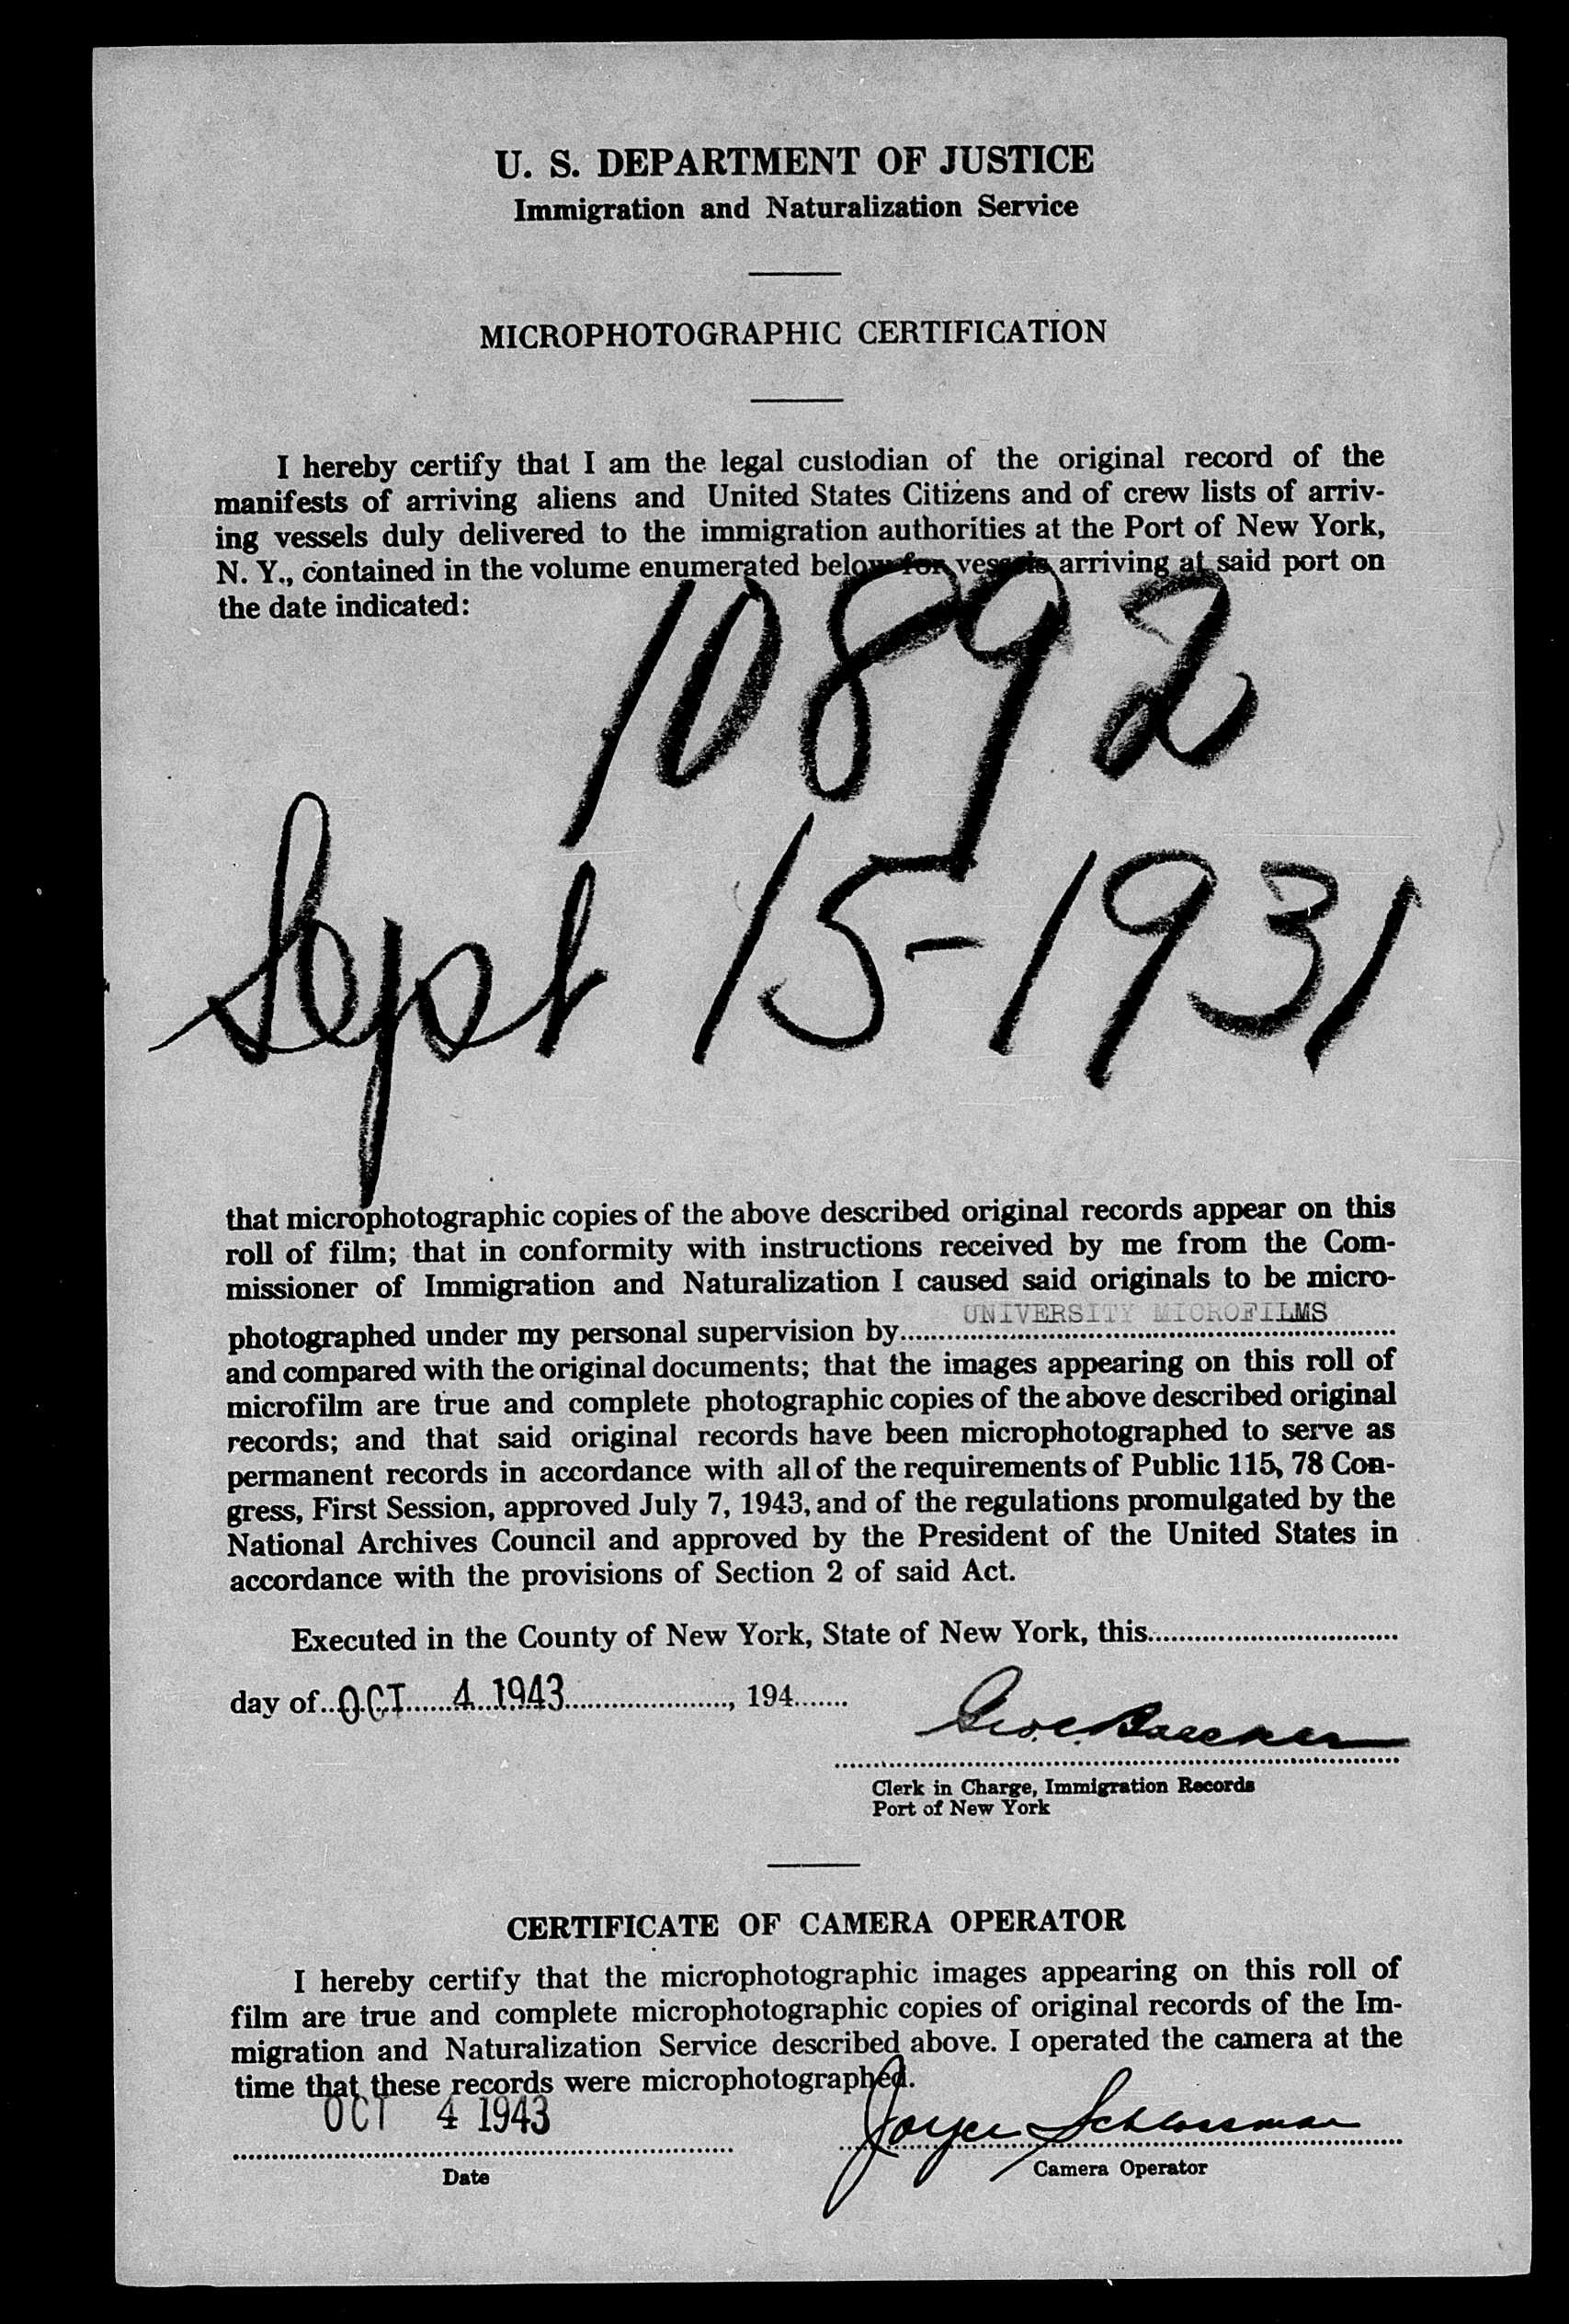 U. S. DEPARTMENT OF JUSTICE
Immigration and Naturalization Service
MICROPHOTOGRAPHIC CERTIFICATION
I hereby certify that I am the legal custodian of the original record of the
manifests of arriving aliens and United States Citizens and of crew lists of arriv-
ing vessels duly delivered to the immigration authorities at the Port of New York,
N. Y., contained in the volume enumerated below for vessels arriving at said port on
the date indicated:
10892
Sept 15-1931
that microphotographic copies of the above described original records appear on this
roll of film; that in conformity with instructions received by me from the Com-
missioner of Immigration and Naturalization I caused said originals to be micro-
photographed under my personal supervision by UNIVERSITY MICROFILMS
and compared with the original documents; that the images appearing on this roll of
microfilm are true and complete photographic copies of the above described original
records; and that said original records have been microphotographed to serve as
permanent records in accordance with all of the requirements of Public 115, 78 Con-
gress, First Session, approved July 7, 1943, and of the regulations promulgated by the
National Archives Council and approved by the President of the United States in
accordance with the provisions of Section 2 of said Act.
Executed in the County of New York, State of New York, this
day of OCT 4 1943, 194
Geo. C.
Clerk in Charge, Immigration Records
Port of New York
CERTIFICATE OF CAMERA OPERATOR
I hereby certify that the microphotographic images appearing on this roll of
film are true and complete microphotographic copies of original records of the Im-
migration and Naturalization Service described above. I operated the camera at the
time that these records were microphotographed.
OCT 4 1943 Joyce Schlossman
Date Camera Operator